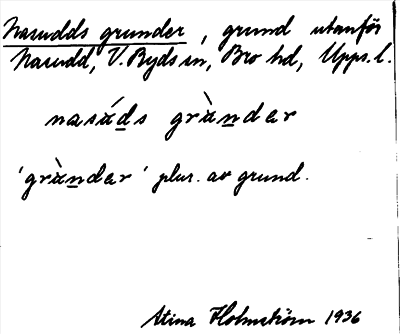 Nasudds grunder, grund utanför
Nasudd, V. Ryds sn, Bro hd, Upps. l.
nasáds grànder
'grànder' plur. av grund.
Stina Holmström 1936